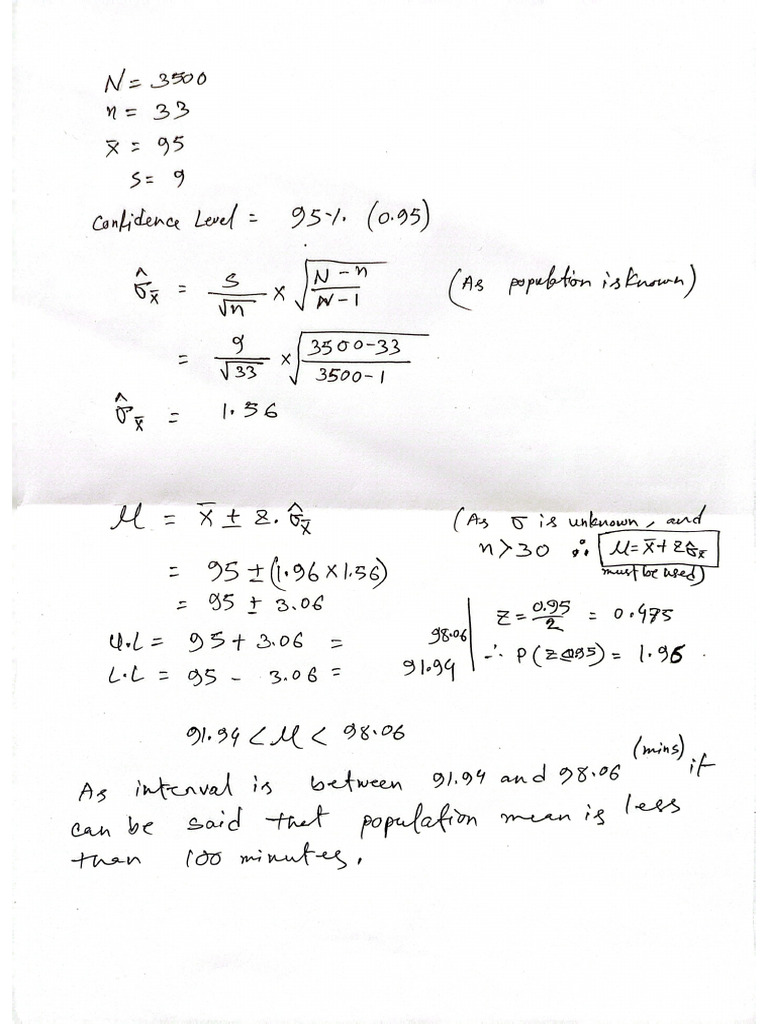 N = 3500
n = 33
x̄ = 95
s = 9
Confidence Level = 95%. (0.95)
σ̂x̄ = s/√n × √((N-n)/(N-1)) (As population is known)
= 9/√33 × √((3500-33)/(3500-1))
σ̂x̄ = 1.56
μ = x̄ ± z. σ̂x̄ (As σ is unknown, and
n>30 ∴ μ= x̄± zσ̂x̄
must be used)
= 95 ± (1.96 × 1.56)
= 95 ± 3.06
Z = 0.95/2 = 0.475
U.L = 95 + 3.06 = 98.06
∴ P(z 0.95) = 1.96.
L.L = 95 - 3.06 = 91.94
91.94 < μ < 98.06
As interval is between 91.94 and 98.06 (mins) it
can be said that population mean is less
than 100 minutes.